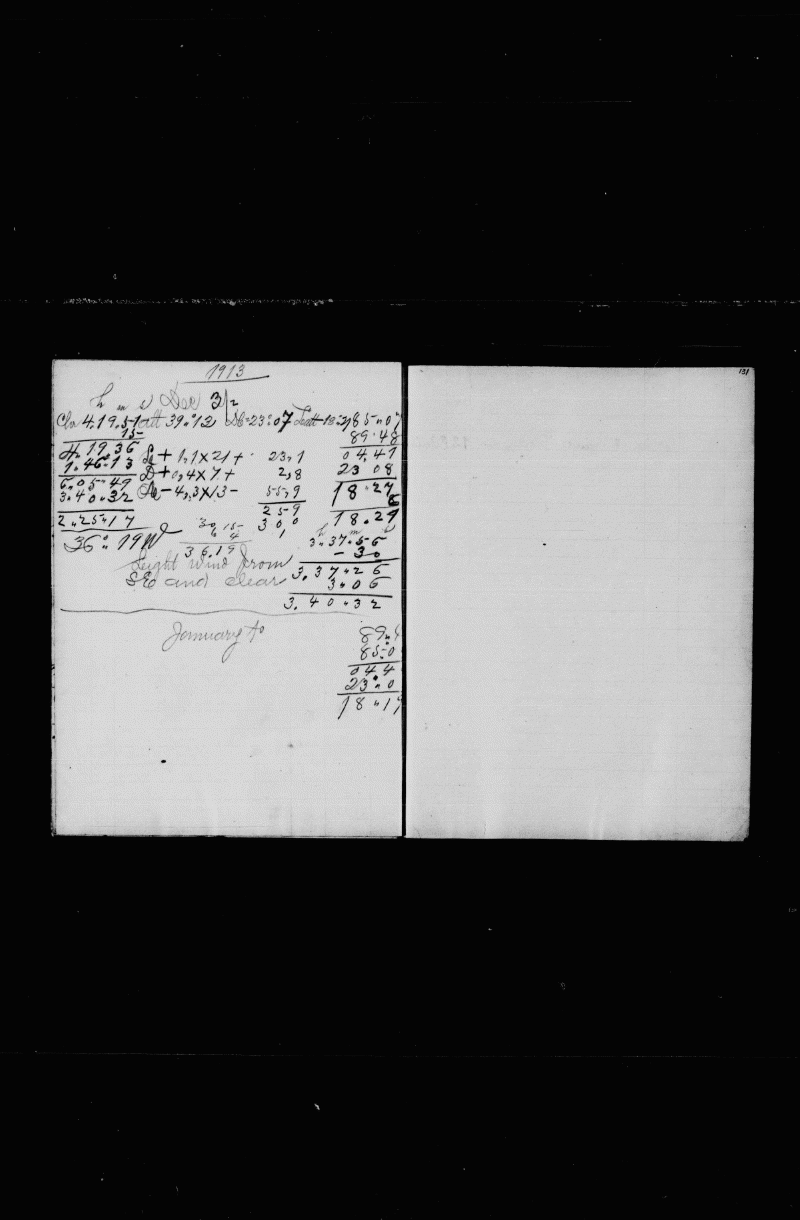 1913
h m s Dec 31
Chr 4.19.51 alt 39.12 Dec 23.07 Latt 18.29 85.07
15 89.48
4.19.36 L + 1,1 X 21 + 23,1 04.41
1.46.13 D + 0,4 X 7 + 2,8 23 08
6.05.49 - 4,3 X 13 - 55,9 18.27
3.40.32 25 9 6
2.25.17 30 0 18.29
36.19 W 30 15 1 h m s
6 4 3.37.56
36.19 - 30
Light wind from 3.37.26
SE and clear 3.06
3.40.32
January to 89.4
85.0
04 4
23.0
18.19
131